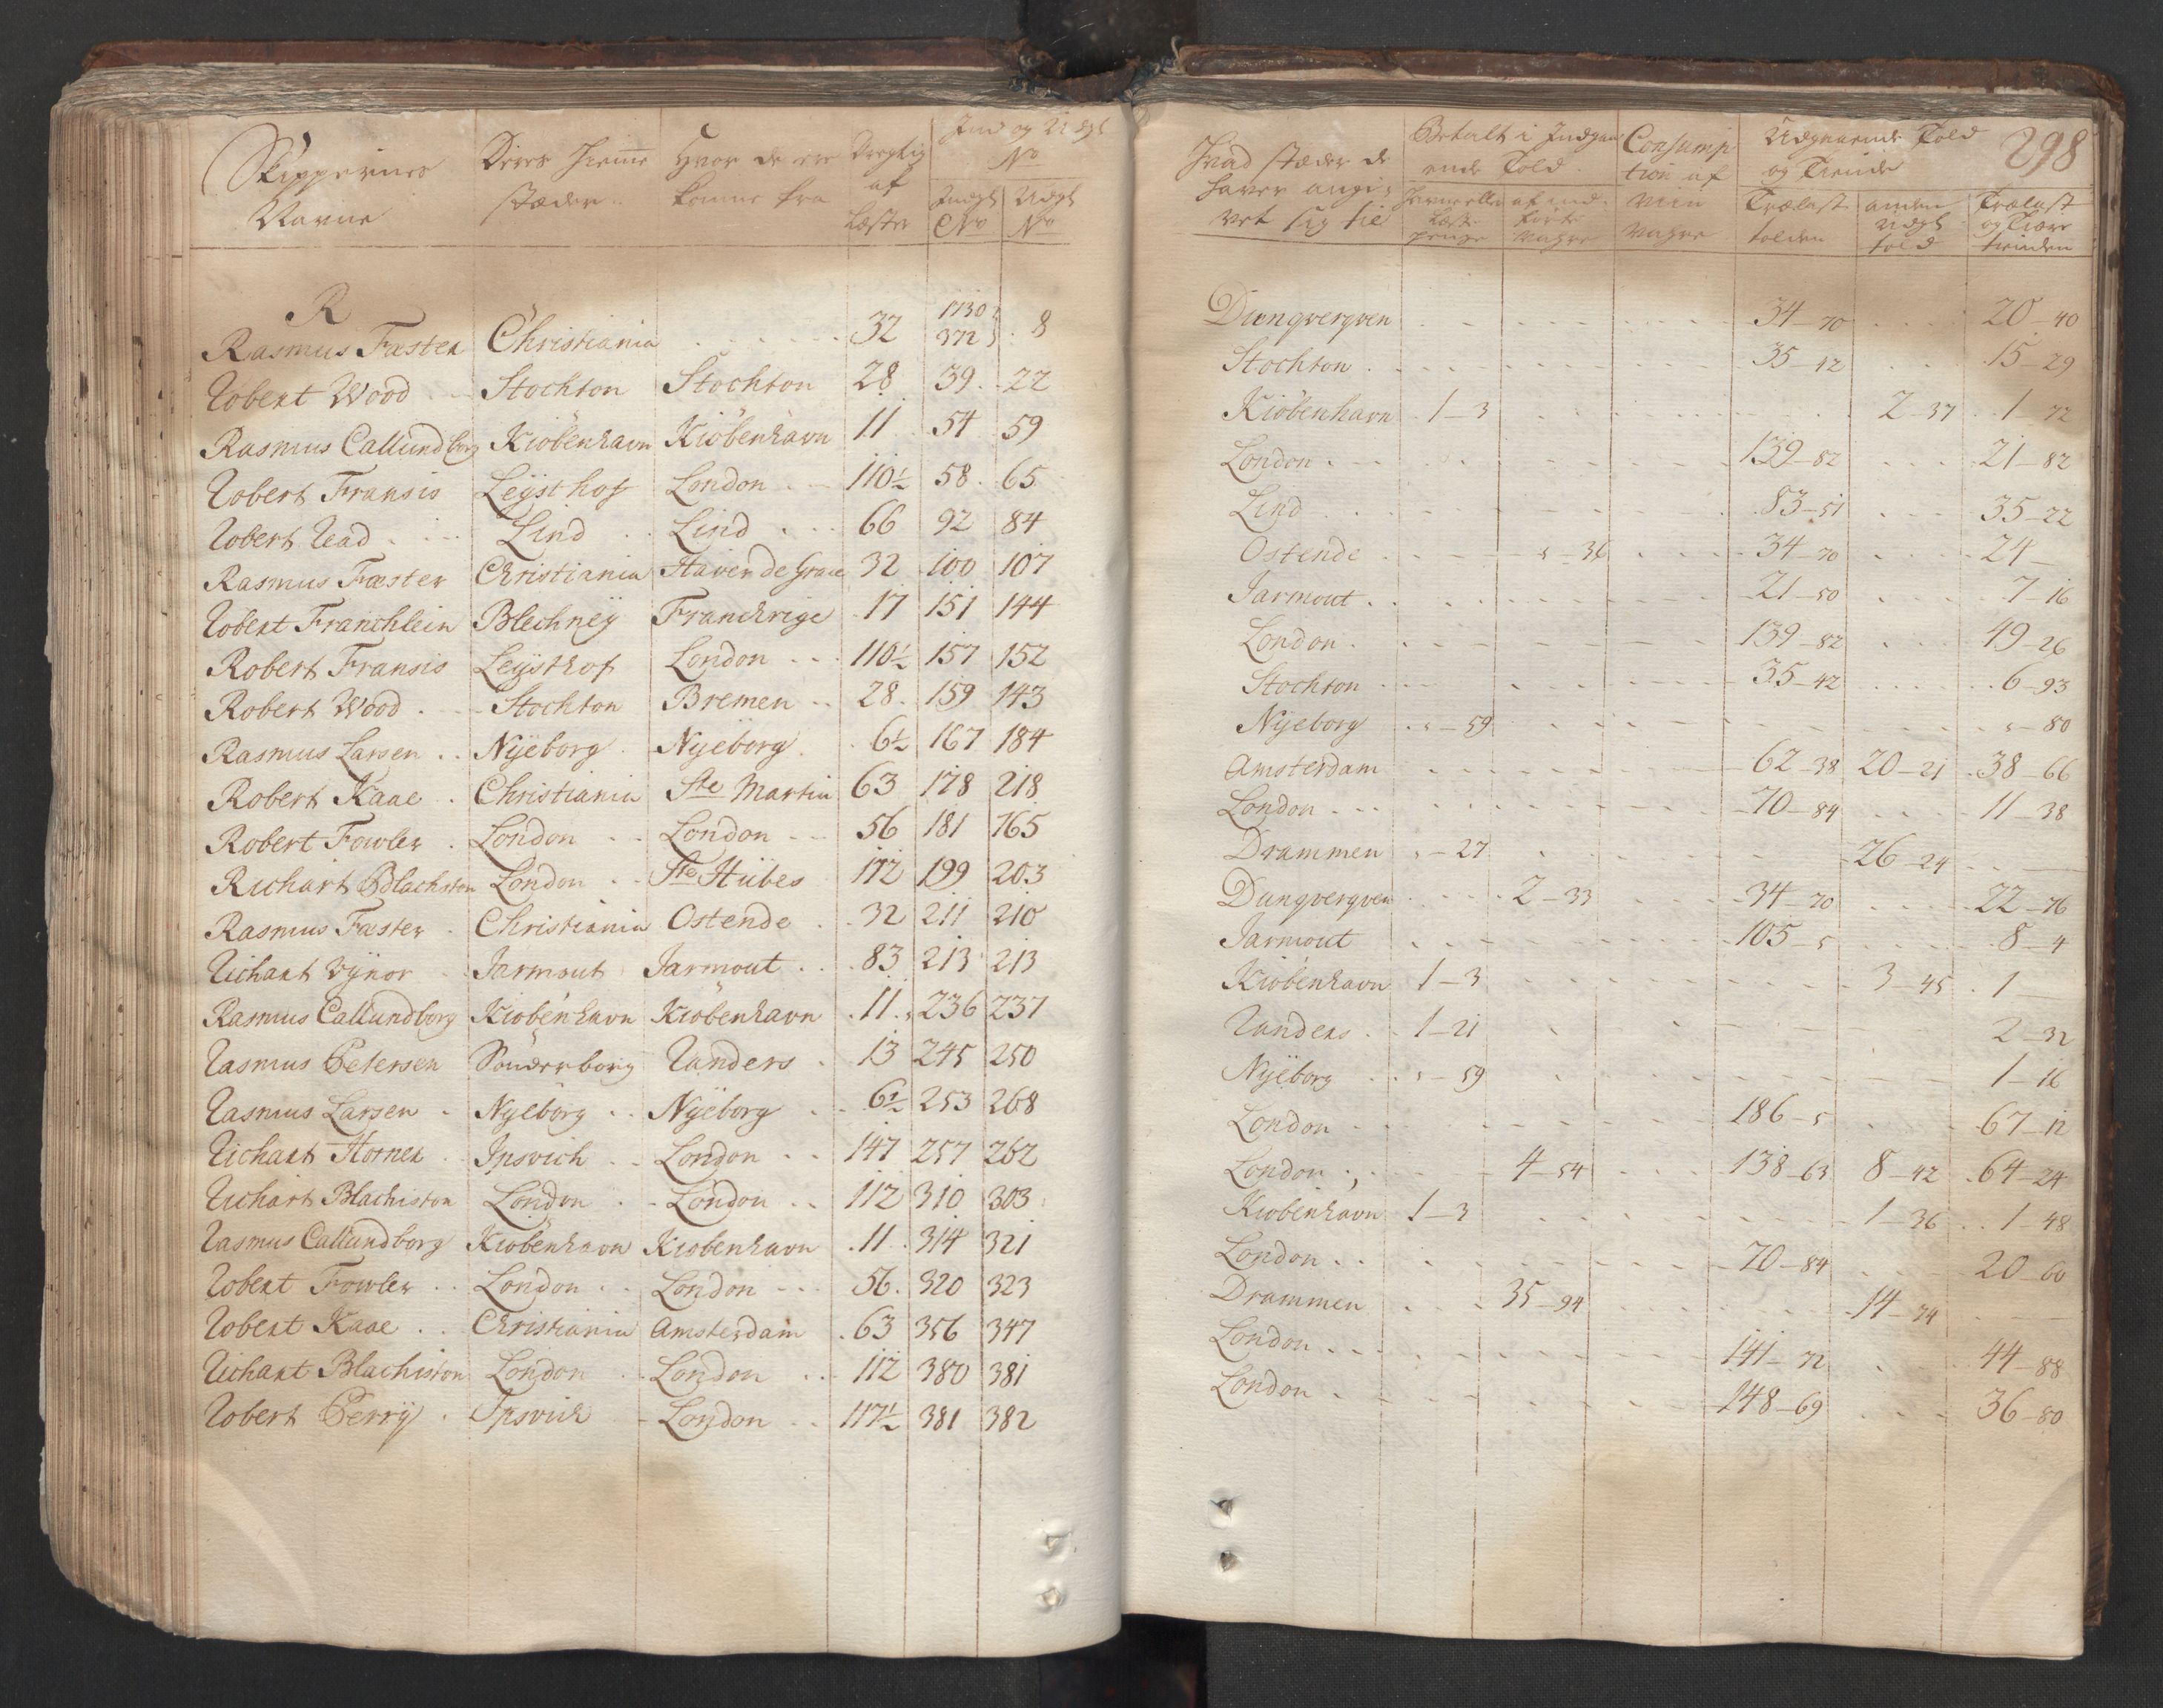 Skippernes Navne | Deres Hiemme stæder | Hvor de ere komne fra | Dregtig af Læster | Ind og Udgt No | Indgt No | Udgt No
R
Rasmus Fæster | Christiania | . . . | 32 | 1730 372 | 8
Robert Wood | Stochton | Stochton | 28 | 39 | 22
Rasmus Callundborg | Kiöbenhavn | Kiöbenhavn | 11 | 54 | 59
Robert Fransis | Leÿsthof | London | 110½ | 58 | 65
Robert Read | Lind | Lind | 66 | 92 | 84
Rasmus Fæster | Christiania | Haver de Grace | 32 | 100 | 107
Robert Franchlein | Blechneÿ | Franckrige | 17 | 151 | 144
Robert Fransis | Leÿsthof | London | 110½ | 157 | 152
Robert Wood | Stochton | Bremen | 28 | 159 | 143
Rasmus Larsen | Nÿeborg | Nÿeborg | 6½ | 167 | 184
Robert Kaae | Christiania | Ste Martin | 63 | 178 | 218
Robert Fowler | London | London | 56 | 181 | 165
Richart Blachston | London | Ste Hübes | 112 | 199 | 203
Rasmus Fæster | Christiania | Ostende | 32 | 211 | 210
Richart Vÿnor | Jarmout | Jarmout | 83 | 213 | 213
Rasmus Callundborg | Kiöbenhavn | Kiöbenhavn | 11 | 236 | 237
Rasmus Petersen | Sönderborg | Randers | 13 | 245 | 250
Rasmus Larsen | Nÿeborg | Nÿeborg | 6½ | 253 | 268
Richart Horner | Ipsvich | London | 147 | 257 | 262
Richart Blachiston | London | London | 112 | 310 | 303
Rasmus Callundborg | Kiöbenhavn | Kiöbenhavn | 11 | 314 | 321
Robert Fowler | London | London | 56 | 320 | 323
Robert Kaae | Christiania | Amsterdam | 63 | 356 | 347
Richart Blachiston | London | London | 112 | 380 | 381
Robert Perrÿ | Ipsvich | London | 117½ | 381 | 382
298
Hvad stæder de haver angivet sig til | Betalt i Indgaaende Told | Consumption af | Udgaaende Told og Tiende
Læste penge | af ind førte Vahre | Viin Vahre | Trælast tolden | anden Udgt told | Trælast og Tiære tienden
Dunqverqven | 34-70 | 20-40
Stochton | 35-42 | 15-29
Kiöbenhavn | 1-3 | 2-37 | 1-72
London | 139-82 | 21-82
Lind | 83-51 | 35-22
Ostende | -36 | 34-70 | 24-
Jarmout | 21-50 | 7-16
London | 139-82 | 49-26
Stochton | 35-42 | 6-93
Nÿeborg | -59 | -80
Amsterdam | 62-38 | 20-21 | 38-66
London | 70-84 | 11-38
Drammen | -27 | 26-24
Dunqverqven | 2-33 | 34-70 | 22-76
Jarmout | 105-5 | 8-4
Kiöbenhavn | 1-3 | 3-45 | 1
Randers | 1-21 | 2-32
Nÿeborg | -59 | 1-16
London | 186-5 | 67-12
London | 4-54 | 138-63 | 8-42 | 64-24
Kiobenhavn | 1-3 | 1-36 | 1-48
London | 70-84 | 20-60
Drammen | 35-94 | 14-74
London | 141-72 | 44-88
London | 148-69 | 36-80